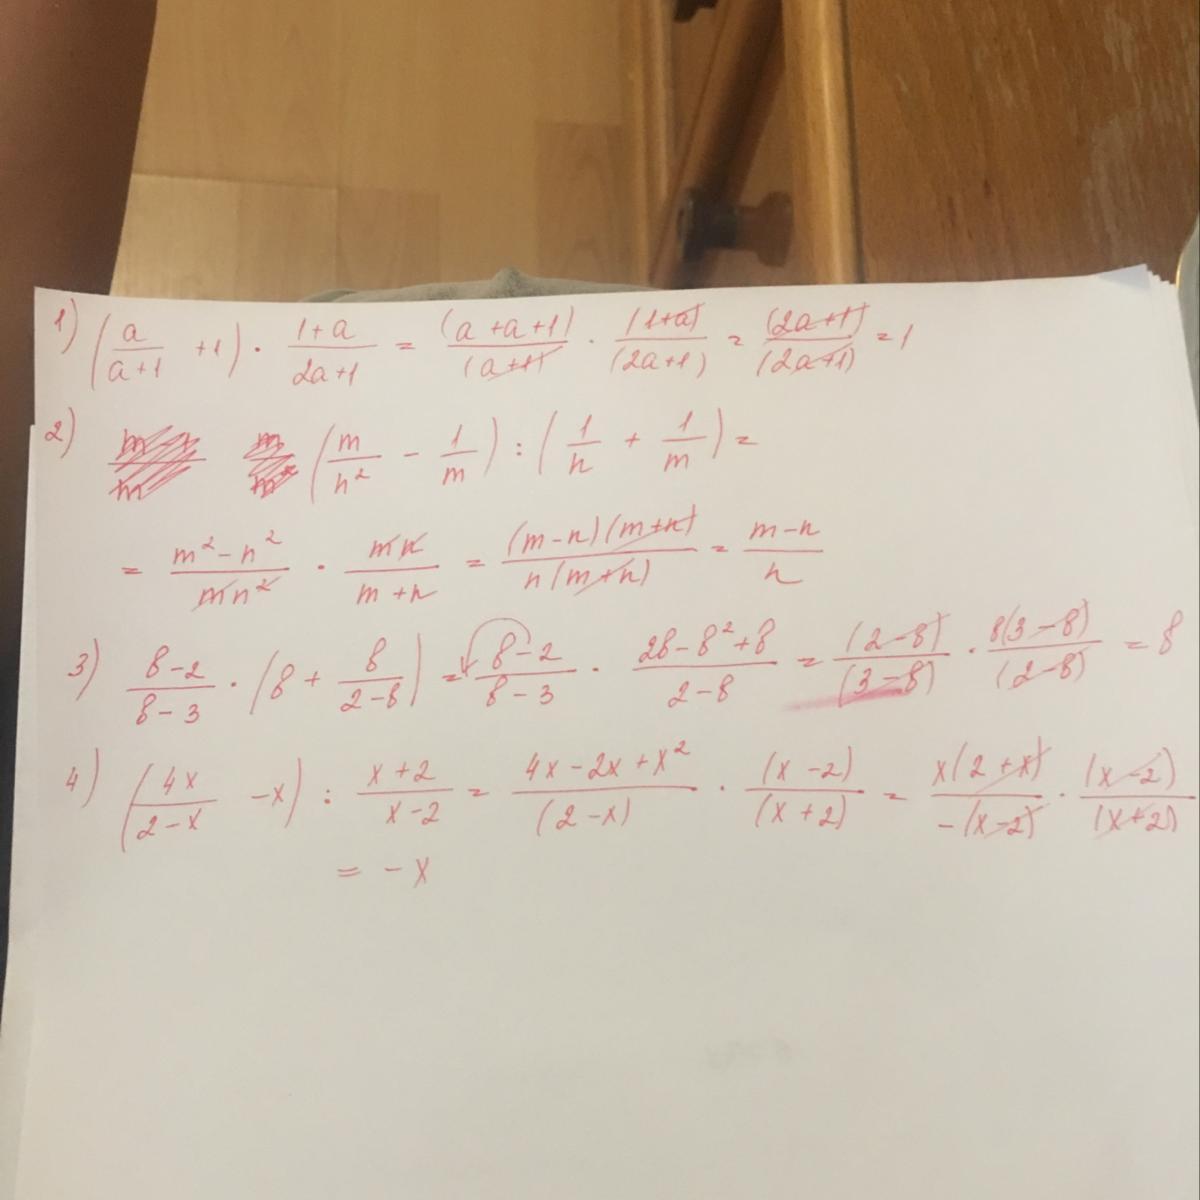 1) (a/(a+1) +1) · (1+a)/(2a+1) = (a+a+1)/(a+1) · (1+a)/(2a+1) = (2a+1)/(2a+1) = 1
2) (m/n² - 1/m) : (1/n + 1/m) =
= (m²-n²)/(mn²) · mn/(m+n) = (m-n)(m+n)/(n(m+n)) = (m-n)/n
3) (8-2)/(8-3) · (8 + 8/(2-8)) = (8-2)/(8-3) · (28-8²+8)/(2-8) = (2-8)/(3-8) · 8(3-8)/(2-8) = 8
4) (4x/(2-x) -x) : (x+2)/(x-2) = (4x-2x+x²)/(2-x) · (x-2)/(x+2) = x(2+x)/(-(x-2)) · (x-2)/(x+2)
= -x